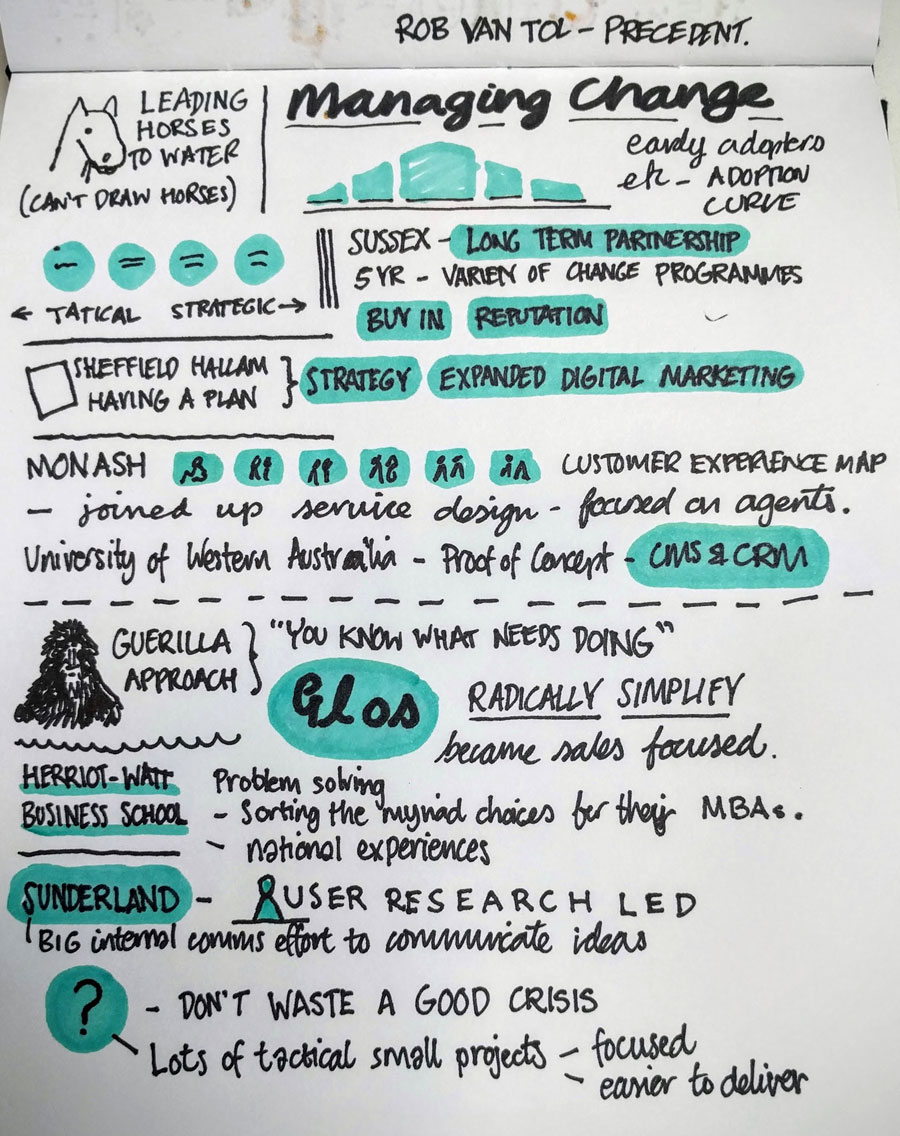 ROB VAN TOL - PRECEDENT.
LEADING
HORSES
TO WATER
(CAN'T DRAW HORSES)
Managing Change
early adopters
etc - ADOPTION
CURVE
← TATICAL STRATEGIC →
SUSSEX - LONG TERM PARTNERSHIP
5YR - VARIETY OF CHANGE PROGRAMMES
BUY IN REPUTATION
SHEFFIELD HALLAM
HAVING A PLAN
STRATEGY EXPANDED DIGITAL MARKETING
MONASH CUSTOMER EXPERIENCE MAP
- joined up service design - focused on agents.
University of Western Australia - Proof of Concept - CMS & CRM
GUERILLA
APPROACH
"YOU KNOW WHAT NEEDS DOING"
Glos
RADICALLY SIMPLIFY
became sales focused.
HERRIOT-WATT
BUSINESS SCHOOL
Problem solving
- Sorting the myriad choices for their MBAs.
- national experiences
SUNDERLAND - USER RESEARCH LED
BIG internal comms effort to communicate ideas
?
- DON'T WASTE A GOOD CRISIS
Lots of tactical small projects - focused
- easier to deliver